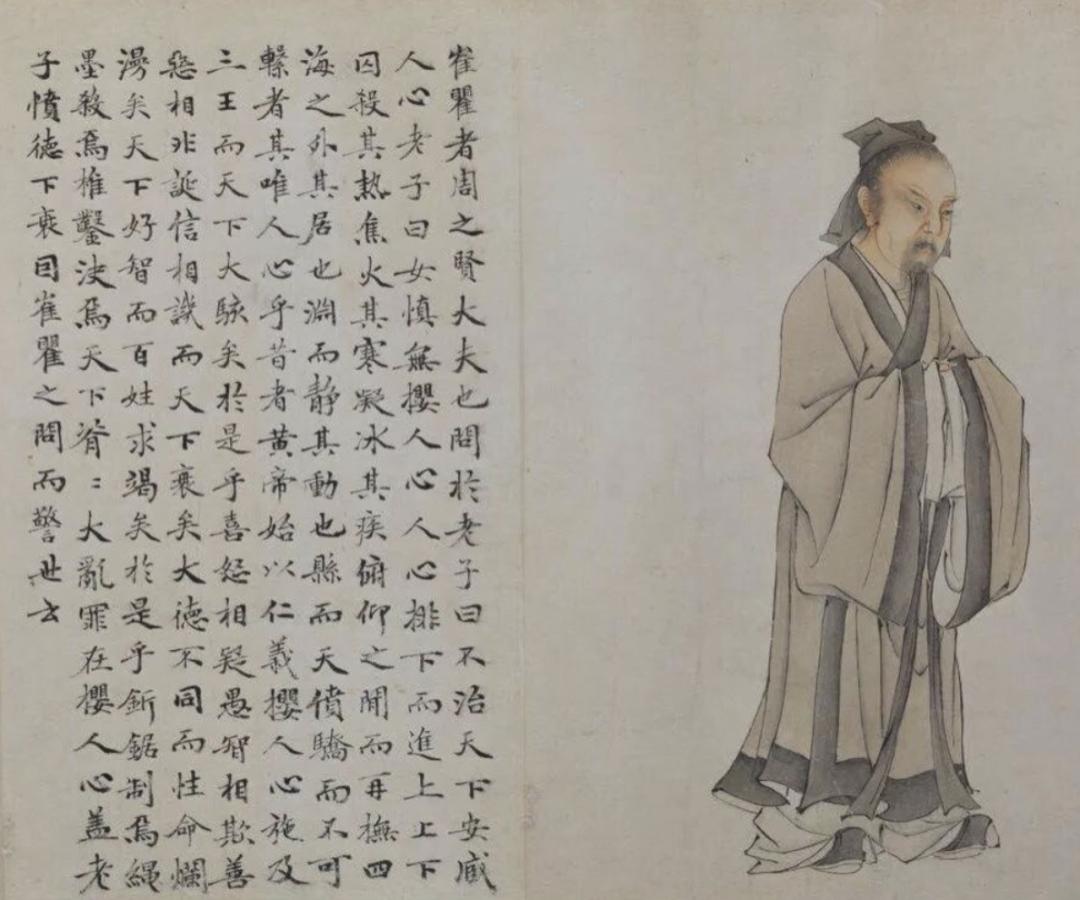 崔瞿者周之賢大夫也問於老子曰不治天下安臧
人心老子曰女慎無攖人心人心排下而進上上下
囚殺其熱焦火其寒凝冰其疾俯仰之間而再撫四
海之外其居也淵而靜其動也縣而天僨驕而不可
繫者其唯人心乎昔者黃帝始以仁義攖人心施及
三王而天下大駭矣於是乎喜怒相疑愚智相欺善
惡相非誕信相譏而天下衰矣大德不同而性命爛
漫矣天下好智而百姓求竭矣於是乎釿鋸制焉繩
墨殺焉椎鑿決焉天下脊〻大亂罪在攖人心蓋老
子憤德下衰因崔瞿之問而警世云